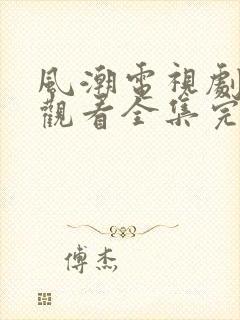 風潮電視劇
觀看全集完
傅杰